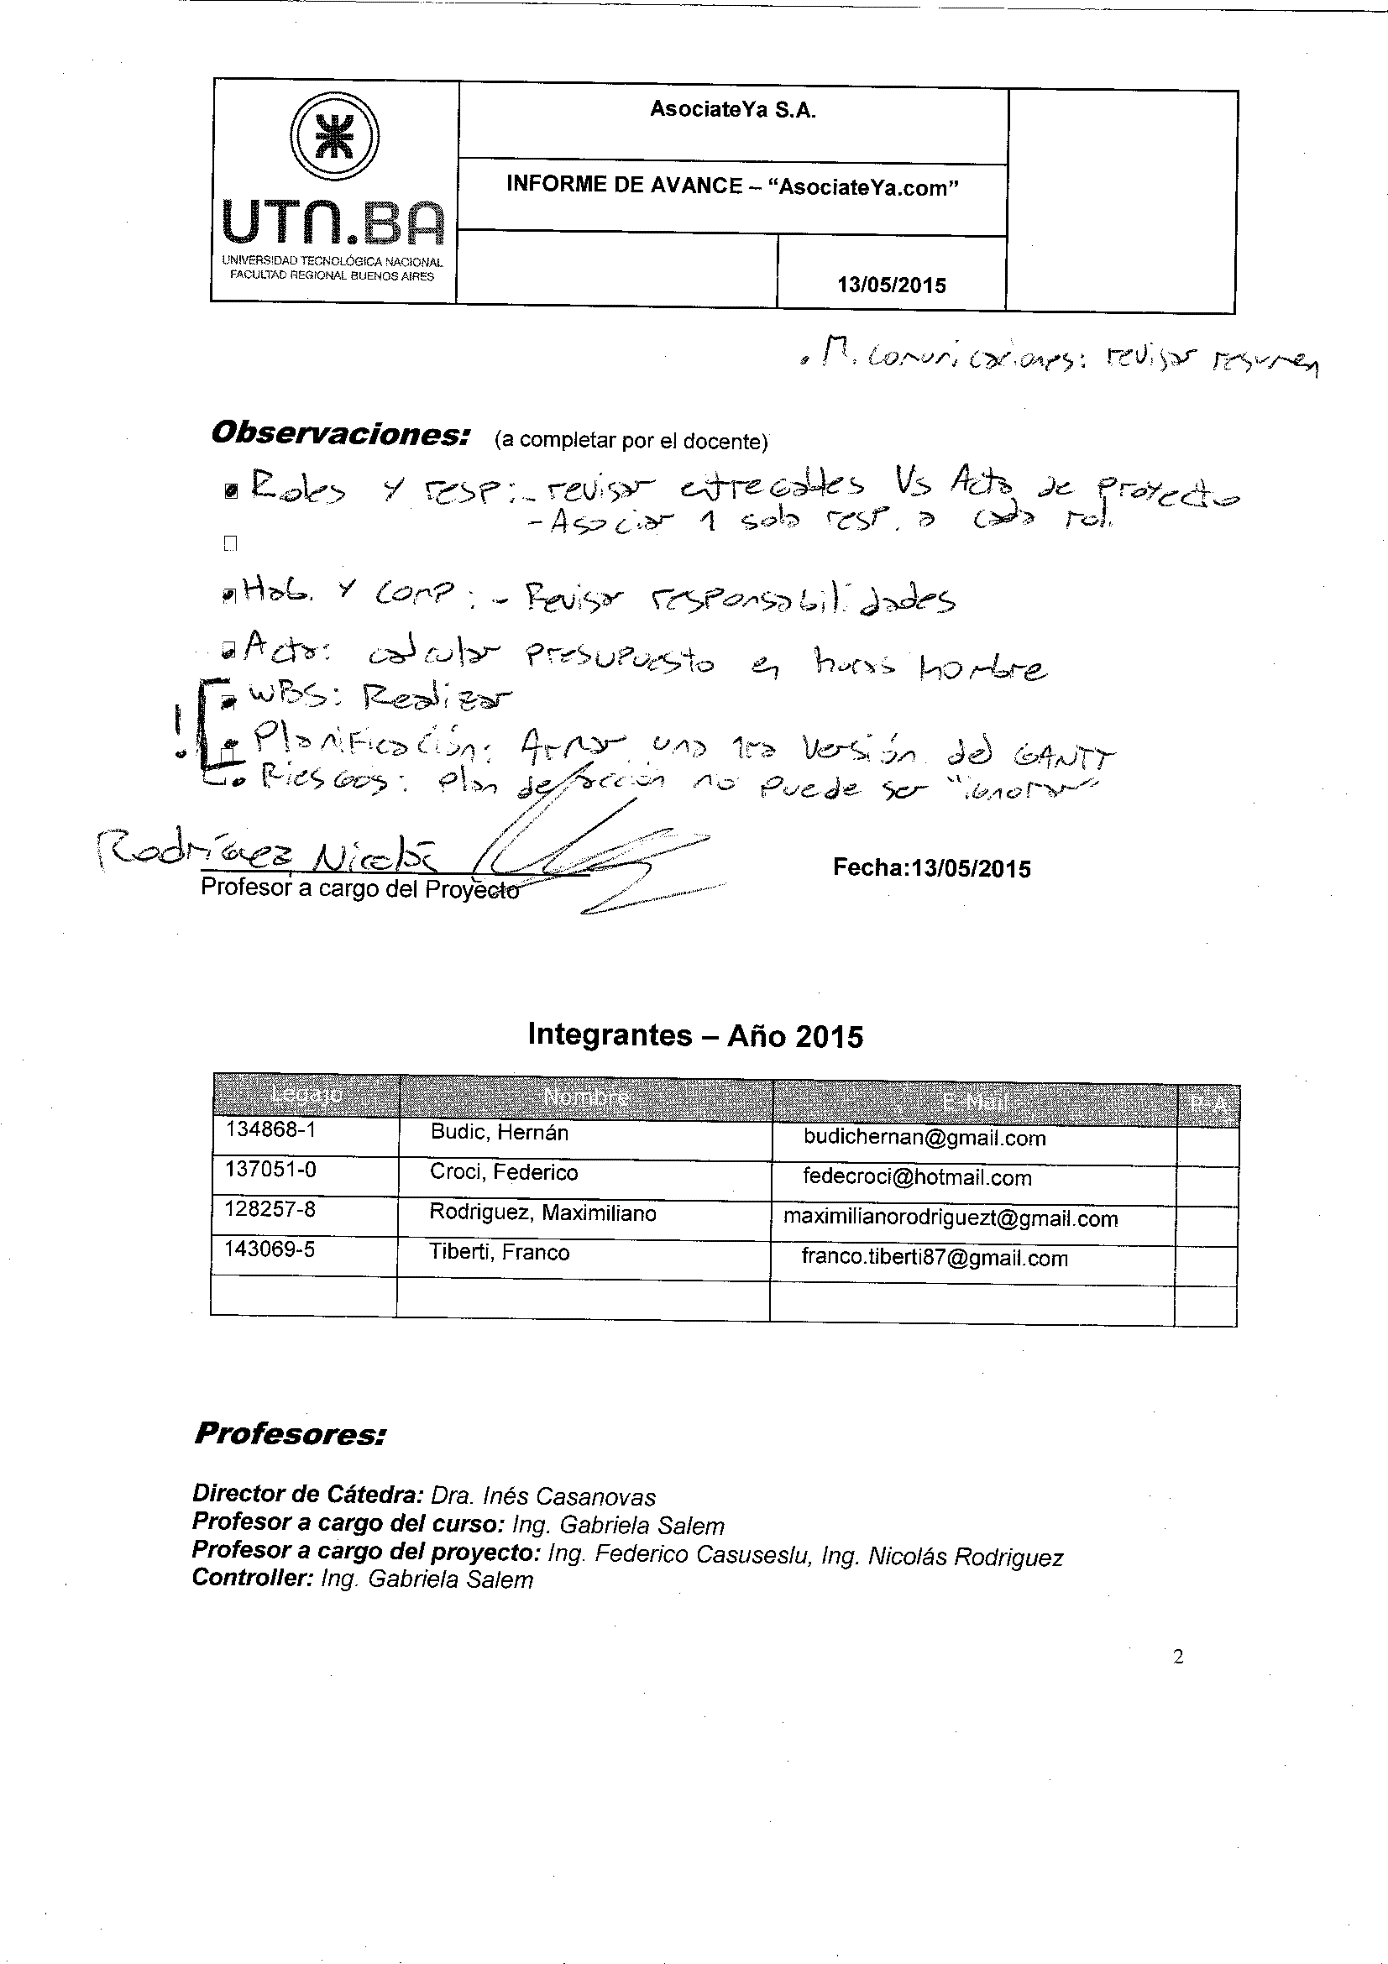 AsociateYa S.A.
INFORME DE AVANCE – “AsociateYa.com”
UTN.BA
UNIVERSIDAD TECNOLÓGICA NACIONAL
FACULTAD REGIONAL BUENOS AIRES
13/05/2015
. M. Comunicaciones: revisar resumen
Observaciones: (a completar por el docente)
Roles y resp: - revisar entregables Vs Acta de proyecto
- Asociar 1 sola resp. a cada rol.
Hab. y comp: - Revisar responsabilidades
Acta: calcular presupuesto en horas hombre
! WBS: Realizar
Planificación: Armar una 1ra versión del GANTT
Riesgos: plan de acción no puede ser "ignorar"
Rodríguez Nicolás
Profesor a cargo del Proyecto
Fecha:13/05/2015
Integrantes – Año 2015
Legajo Nombre E-Mail P-A
134868-1 Budic, Hernán budichernan@gmail.com
137051-0 Croci, Federico fedecroci@hotmail.com
128257-8 Rodriguez, Maximiliano maximilianorodriguezt@gmail.com
143069-5 Tiberti, Franco franco.tiberti87@gmail.com
Profesores:
Director de Cátedra: Dra. Inés Casanovas
Profesor a cargo del curso: Ing. Gabriela Salem
Profesor a cargo del proyecto: Ing. Federico Casuseslu, Ing. Nicolás Rodriguez
Controller: Ing. Gabriela Salem
2